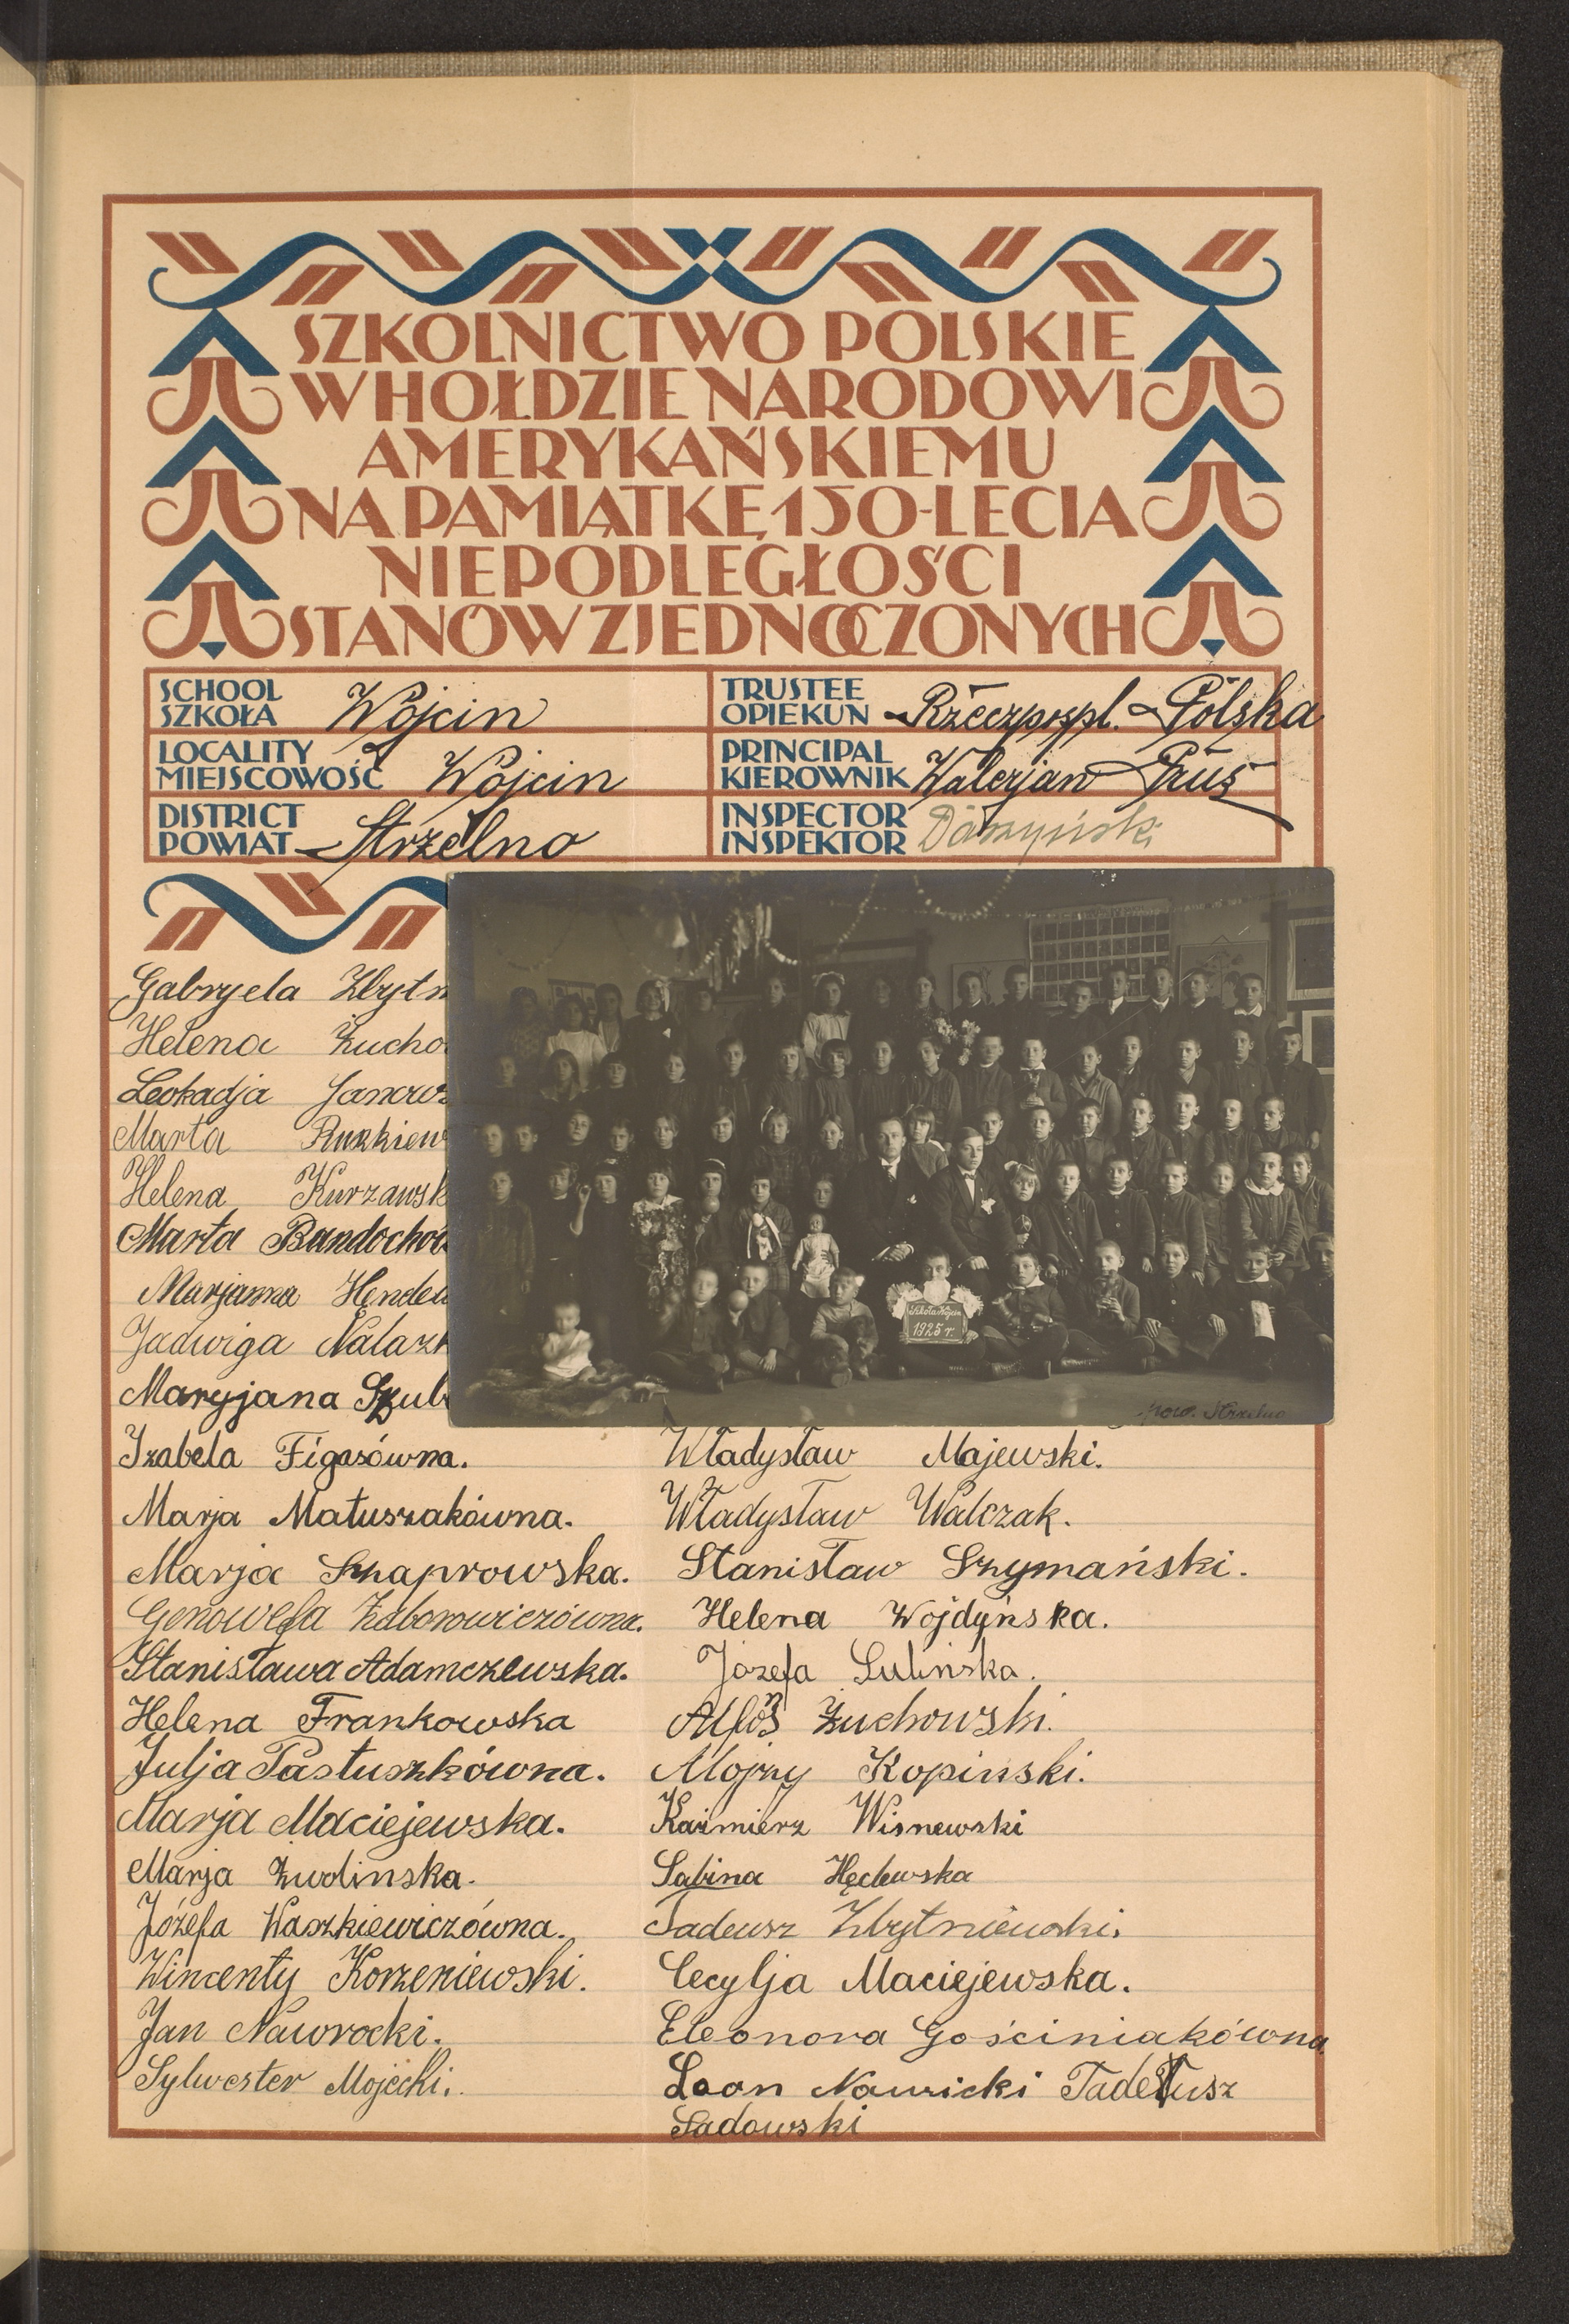 SZKOLNICTWO POLSKIE
W HOŁDZIE NARODOWI
AMERYKAŃSKIEMU
NA PAMIĄTKĘ 150-LECIA
NIEPODLEGŁOŚCI
STANÓW ZJEDNOCZONYCH
SCHOOL
SZKOŁA Wójcin
TRUSTEE
OPIEKUN Rzeczpospl. Polska
LOCALITY
MIEJSCOWOŚĆ Wójcin
PRINCIPAL
KIEROWNIK Walerjan Prus
DISTRICT
POWIAT Strzelno
INSPECTOR
INSPEKTOR
Gabryela Zbytn
Helena Żucho
Leokadja Janows
Marta
Helena Kurzawsk
Marta Bandochów
Marjanna
Jadwiga Nalazk
Maryjana Szub
Szkoła Wójcin
1925 r.
pow. Strzelno
Izabela Figasówna.
Marja Matuszakówna.
Marja Szaprowska.
Genowefa Zaborowiczówna.
Stanisława Adamczewska.
Helena Frankowska
Julja Pastuszkówna.
Marja Maciejewska.
Marja Zwolinska.
Józefa Waszkiewiczówna.
Wincenty Korzeniewski.
Jan Nawrocki.
Sylwester Mojecki.
Władysław Majewski.
Władysław Walczak.
Stanisław Szymański.
Helena Wojdyńska.
Józefa Sulinska.
Alfons Żuchowski.
Mojzy Kopinski.
Kazimierz Wisnewski
Sabina
Tadeusz Zbytniewski.
Cecylja Maciejewska.
Eleonora Gościniakówna.
Leon Nawricki Tadeusz
Sadowski